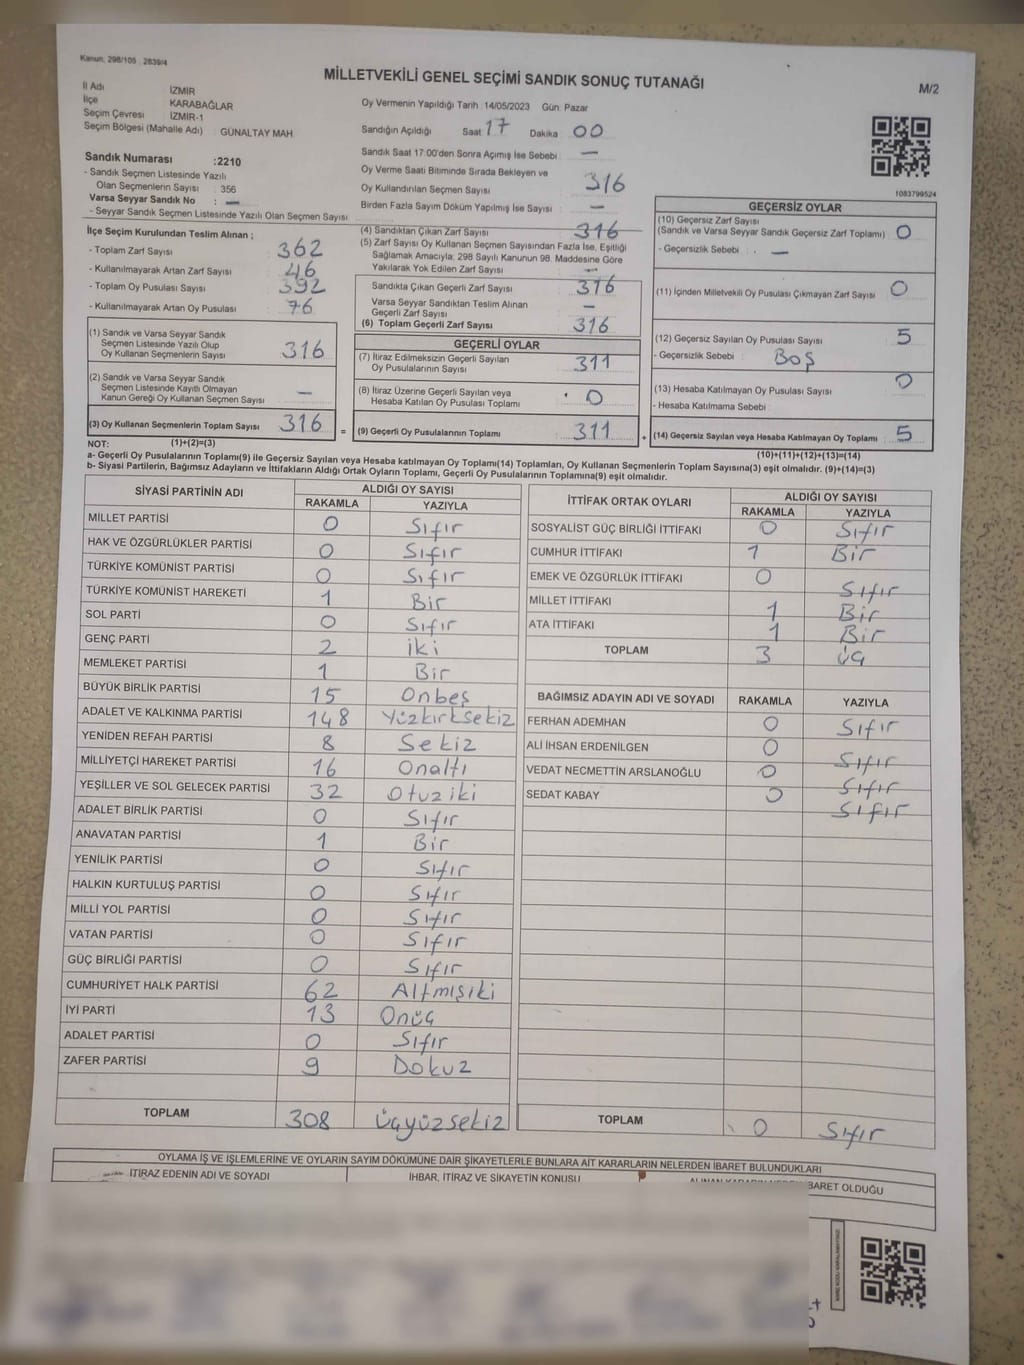 Kanun, 298/105 : 2839/4
MİLLETVEKİLİ GENEL SEÇİMİ SANDIK SONUÇ TUTANAĞI
M/2
İl Adı İZMİR
İlçe KARABAĞLAR
Seçim Çevresi İZMİR-1
Seçim Bölgesi (Mahalle Adı) : GÜNALTAY MAH.
Oy Vermenin Yapıldığı Tarih 14/05/2023 Gün: Pazar
Sandığın Açıldığı Saat 17 Dakika 00
Sandık Saat 17:00'den Sonra Açımış İse Sebebi : —
Oy Verme Saati Bitiminde Sırada Bekleyen ve
Oy Kullandırılan Seçmen Sayısı 316
Birden Fazla Sayım Döküm Yapılmış İse Sayısı —
1083799524
Sandık Numarası :2210
- Sandık Seçmen Listesinde Yazılı
Olan Seçmenlerin Sayısı : 356
Varsa Seyyar Sandık No : —
- Seyyar Sandık Seçmen Listesinde Yazılı Olan Seçmen Sayısı
İlçe Seçim Kurulundan Teslim Alınan ;
- Toplam Zarf Sayısı 362
- Kullanılmayarak Artan Zarf Sayısı 46
- Toplam Oy Pusulası Sayısı 392
- Kullanılmayarak Artan Oy Pusulası 76
(1) Sandık ve Varsa Seyyar Sandık
Seçmen Listesinde Yazılı Olup
Oy Kullanan Seçmenlerin Sayısı 316
(2) Sandık ve Varsa Seyyar Sandık
Seçmen Listesinde Kayıtlı Olmayan
Kanun Gereği Oy Kullanan Seçmen Sayısı —
(3) Oy Kullanan Seçmenlerin Toplam Sayısı 316
(4) Sandıktan Çıkan Zarf Sayısı 316
(5) Zarf Sayısı Oy Kullanan Seçmen Sayısından Fazla İse, Eşitliği
Sağlamak Amacıyla, 298 Sayılı Kanunun 98. Maddesine Göre
Yakılarak Yok Edilen Zarf Sayısı —
Sandıkta Çıkan Geçerli Zarf Sayısı 316
Varsa Seyyar Sandıktan Teslim Alınan
Geçerli Zarf Sayısı —
(6) Toplam Geçerli Zarf Sayısı 316
GEÇERLİ OYLAR
(7) İtiraz Edilmeksizin Geçerli Sayılan
Oy Pusulalarının Sayısı 311
(8) İtiraz Üzerine Geçerli Sayılan veya
Hesaba Katılan Oy Pusulası Toplamı 0
= (9) Geçerli Oy Pusulalarının Toplamı 311
GEÇERSİZ OYLAR
(10) Geçersiz Zarf Sayısı
(Sandık ve Varsa Seyyar Sandık Geçersiz Zarf Toplamı) 0
- Geçersizlik Sebebi : . —
(11) İçinden Milletvekili Oy Pusulası Çıkmayan Zarf Sayısı 0
(12) Geçersiz Sayılan Oy Pusulası Sayısı 5
- Geçersizlik Sebebi BOŞ
(13) Hesaba Katılmayan Oy Pusulası Sayısı 0
- Hesaba Katılmama Sebebi
+ (14) Geçersiz Sayılan veya Hesaba Katılmayan Oy Toplamı 5
NOT: (1)+(2)=(3) (10)+(11)+(12)+(13)=(14)
a- Geçerli Oy Pusulalarının Toplamı(9) ile Geçersiz Sayılan veya Hesaba katılmayan Oy Toplamı(14) Toplamları, Oy Kullanan Seçmenlerin Toplam Sayısına(3) eşit olmalıdır. (9)+(14)=(3)
b- Siyasi Partilerin, Bağımsız Adayların ve İttifakların Aldığı Ortak Oyların Toplamı, Geçerli Oy Pusulalarının Toplamına(9) eşit olmalıdır.
SİYASİ PARTİNİN ADI ALDIĞI OY SAYISI
RAKAMLA YAZIYLA
MİLLET PARTİSİ 0 Sıfır
HAK VE ÖZGÜRLÜKLER PARTİSİ 0 Sıfır
TÜRKİYE KOMÜNİST PARTİSİ 0 Sıfır
TÜRKİYE KOMÜNİST HAREKETİ 1 Bir
SOL PARTİ 0 Sıfır
GENÇ PARTİ 2 iki
MEMLEKET PARTİSİ 1 Bir
BÜYÜK BİRLİK PARTİSİ 15 Onbeş
ADALET VE KALKINMA PARTİSİ 148 Yüzkırksekiz
YENİDEN REFAH PARTİSİ 8 Sekiz
MİLLİYETÇİ HAREKET PARTİSİ 16 Onaltı
YEŞİLLER VE SOL GELECEK PARTİSİ 32 Otuziki
ADALET BİRLİK PARTİSİ 0 Sıfır
ANAVATAN PARTİSİ 1 Bir
YENİLİK PARTİSİ 0 Sıfır
HALKIN KURTULUŞ PARTİSİ 0 Sıfır
MİLLİ YOL PARTİSİ 0 Sıfır
VATAN PARTİSİ 0 Sıfır
GÜÇ BİRLİĞİ PARTİSİ 0 Sıfır
CUMHURİYET HALK PARTİSİ 62 Altmışiki
İYİ PARTİ 13 Onüç
ADALET PARTİSİ 0 Sıfır
ZAFER PARTİSİ 9 Dokuz
TOPLAM 308 üçyüzsekiz
İTTİFAK ORTAK OYLARI ALDIĞI OY SAYISI
RAKAMLA YAZIYLA
SOSYALİST GÜÇ BİRLİĞİ İTTİFAKI 0 Sıfır
CUMHUR İTTİFAKI 1 Bir
EMEK VE ÖZGÜRLÜK İTTİFAKI 0 Sıfır
MİLLET İTTİFAKI 1 Bir
ATA İTTİFAKI 1 Bir
TOPLAM 3 üç
BAĞIMSIZ ADAYIN ADI VE SOYADI RAKAMLA YAZIYLA
FERHAN ADEMHAN 0 Sıfır
ALİ İHSAN ERDENİLGEN 0 Sıfır
VEDAT NECMETTİN ARSLANOĞLU 0 Sıfır
SEDAT KABAY 0 Sıfır
TOPLAM 0 Sıfır
OYLAMA İŞ VE İŞLEMLERİNE VE OYLARIN SAYIM DÖKÜMÜNE DAİR ŞİKAYETLERLE BUNLARA AİT KARARLARIN NELERDEN İBARET BULUNDUKLARI
İTİRAZ EDENİN ADI VE SOYADI İHBAR, İTİRAZ VE ŞİKAYETİN KONUSU BARET OLDUĞU